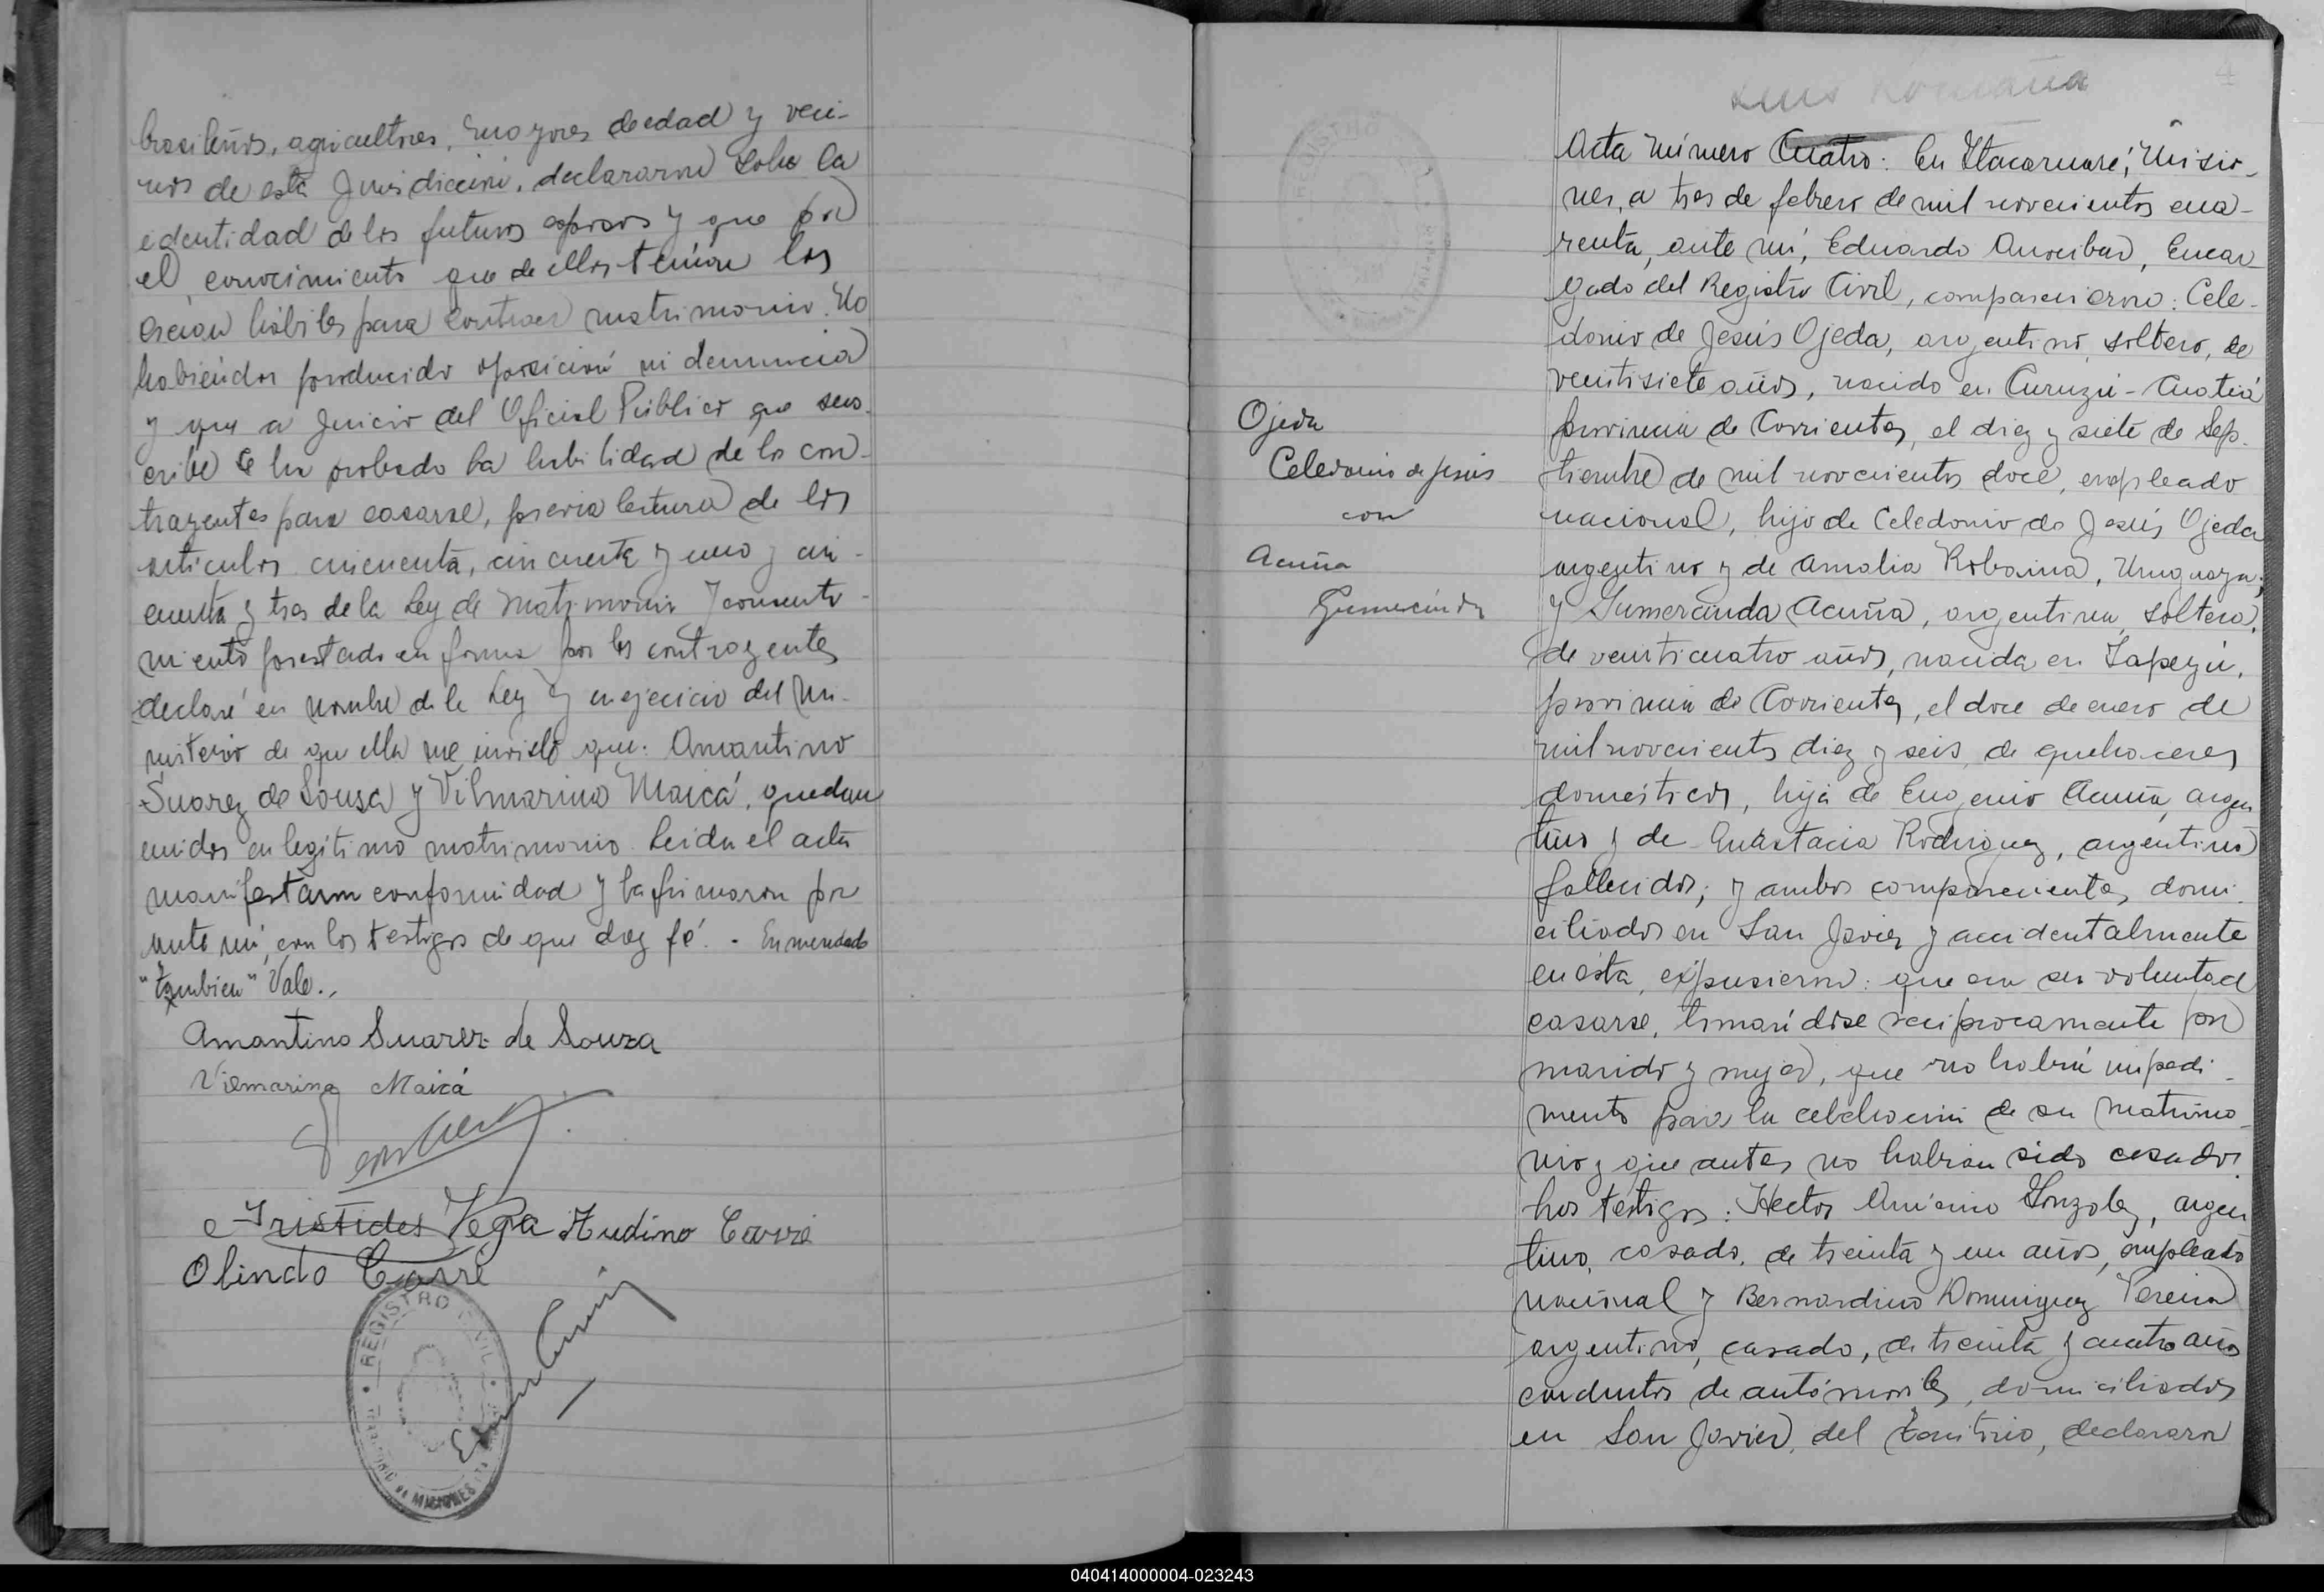 brasileños, agricultores, mayores de edad y veci-
nos de esta Jurisdicción, declararon sobre la
identidad de los futuros esposos y que por
el conocimiento que de ellos tenían los
creían hábiles para contraer matrimonio. No
habiéndose producido oposición ni denuncia
y que a juicio del Oficial Público que sus-
cribe se ha probado la habilidad de los con-
trayentes para casarse, previa lectura de los
artículos cincuenta, cincuenta y uno y cin-
cuenta y tres de la Ley de Matrimonio y consenti-
miento prestado en forma por los contrayentes
declaré en nombre de la Ley y en ejecicio del Mi-
nisterio de que ella me inviste que: Amantino
Suarez de Sousa y Vilmarina Maicá, quedan
unidos en legítimo matrimonio. Leida el acta
manifestaron conformidad y la firmaron por
ante mí, con los testigos de que doy fé. - Enmendado
"también" Vale.,
Amantino Suarez de Souza
Vilmarina Maicá
Aristides Vega Rudino Carré
Olindo Carré
REGISTRO CIVIL
TERRITORIO DE MISIONES
4
Acta número Cuatro: En Itacaruaré, Misio-
nes, a tres de febrero de mil novecientos cua-
renta, ante mí, Eduardo Encar-
gado del Registro Civil, comparecieron: Cele-
donio de Jesús Ojeda, argentino, soltero, de
veintisiete años, nacido en Curuzú-Cuatiá
provincia de Corrientes, el diez y siete de Sep-
tiembre de mil novecientos doce, empleado
nacional, hijo de Celedonio de Jesús Ojeda
argentino y de Amalia Robaina, Uruguaya;
y Gumercinda Acuña, argentina, soltera,
de veinticuatro años, nacida en Yapeyú,
provincia de Corrientes, el doce de enero de
mil novecientos diez y seis, de quehaceres
domésticos, hija de Eugenio Acuña, argen
tino y de Anastacia Rodriguez, argentina
fallecidos; y ambos comparecientes domi-
ciliados en San Javier y accidentalmente
en ésta, expusieron: que era su voluntad
casarse, tomándose recíprocamente por
marido y mujer, que no había impedi-
mento para la celebración de su matrimo-
nio y que antes no habían sido casados
Los testigos: Hector Gonzalez, argen
tino, casado, de treinta y un años, empleado
nacional y Bernardino Dominguez Pereira
argentino, casado, de treinta y cuatro años
conductor de automóviles, domiciliados
en San Javier, del Territorio, declararon
Ojeda
Celedonio de Jesús
con
Acuña
Gumercinda
040414000004-023243